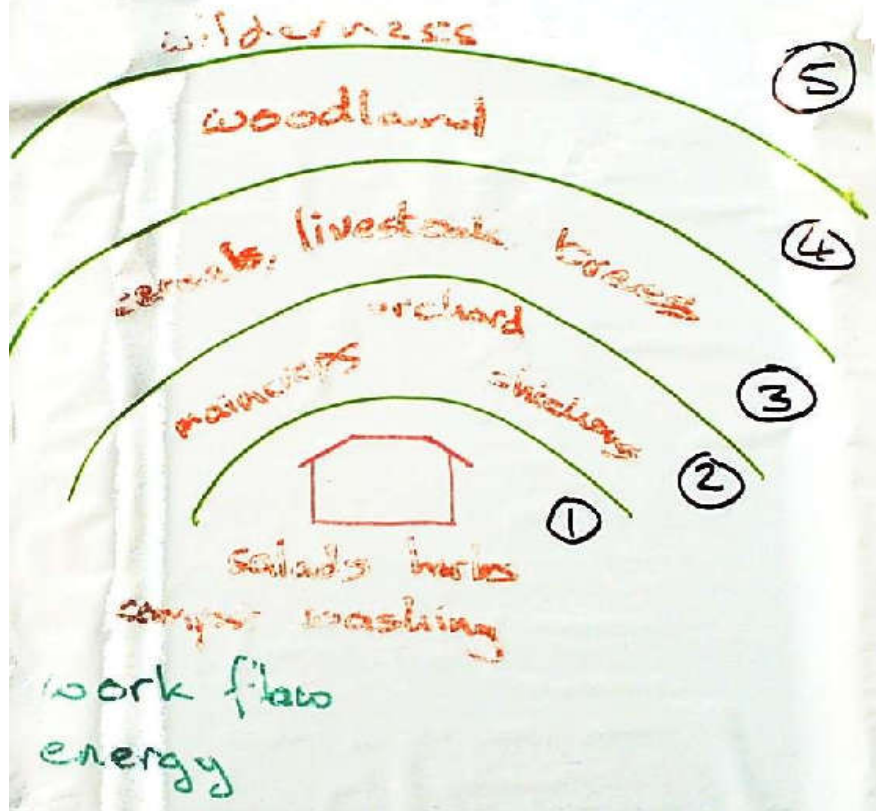 wilderness
5
woodland
4
cereals, livestock trees
orchard
3
maincrops chickens
2
1
salads herbs
compost washing
work flow
energy